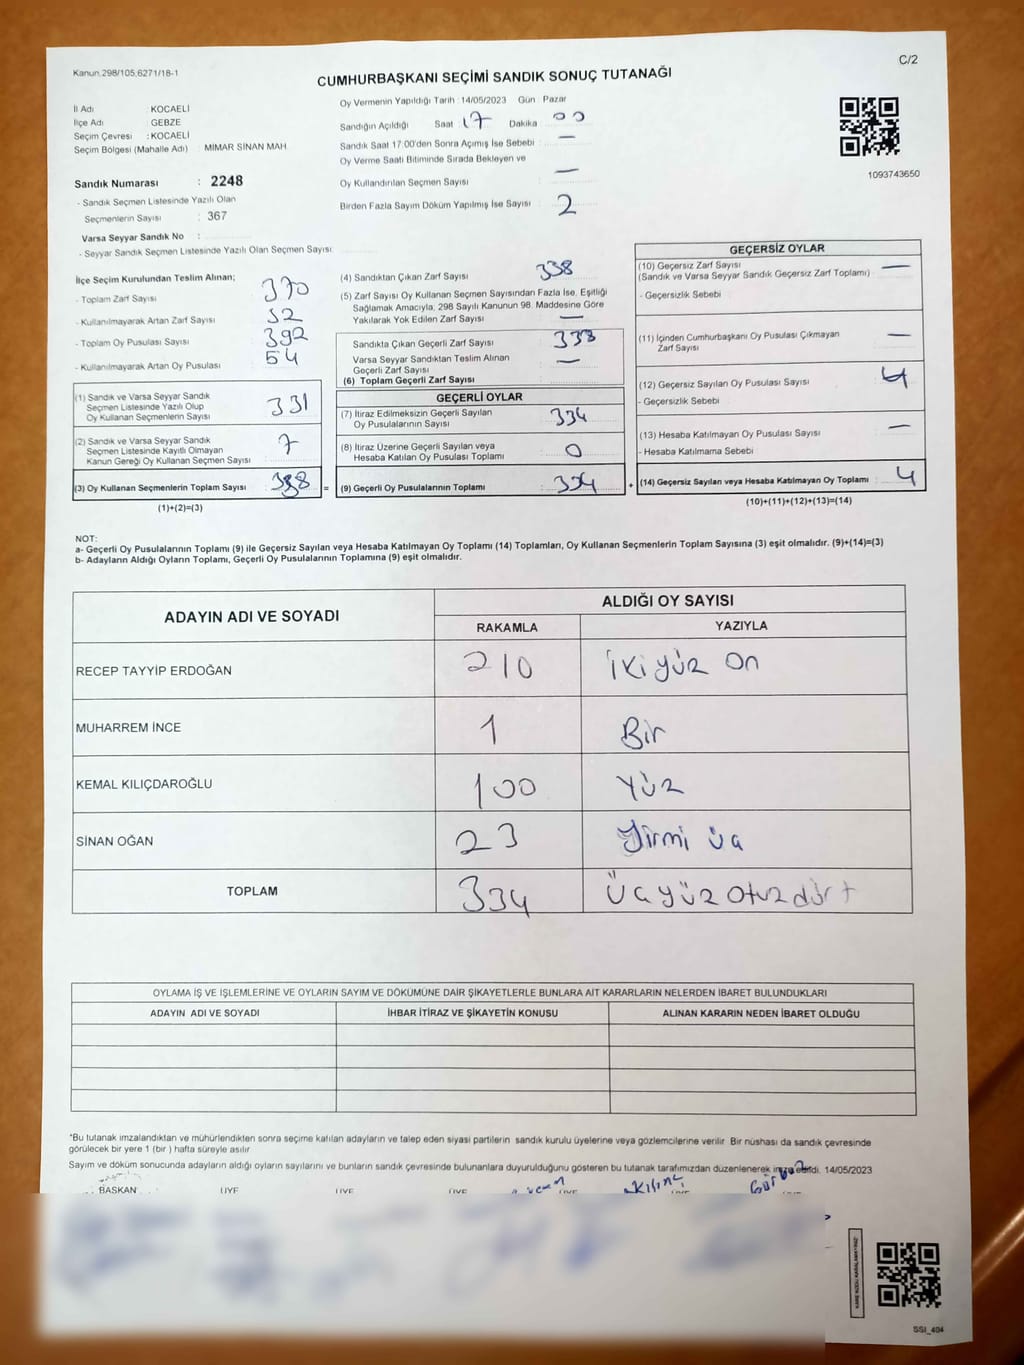 Kanun.298/105;6271/18-1
C/2
CUMHURBAŞKANI SEÇİMİ SANDIK SONUÇ TUTANAĞI
İl Adı : KOCAELİ
İlçe Adı : GEBZE
Seçim Çevresi : KOCAELİ
Seçim Bölgesi (Mahalle Adı) : MİMAR SİNAN MAH
Sandık Numarası : 2248
- Sandık Seçmen Listesinde Yazılı Olan
Seçmenlerin Sayısı : 367
Varsa Seyyar Sandık No :
- Seyyar Sandık Seçmen Listesinde Yazılı Olan Seçmen Sayısı:
Oy Vermenin Yapıldığı Tarih : 14/05/2023 Gün Pazar
Sandığın Açıldığı Saat : 17 Dakika : 00
Sandık Saat 17:00'den Sonra Açımış İse Sebebi : —
Oy Verme Saati Bitiminde Sırada Bekleyen ve
Oy Kullandırılan Seçmen Sayısı : —
Birden Fazla Sayım Döküm Yapılmış İse Sayısı : 2
1093743650
İlçe Seçim Kurulundan Teslim Alınan;
- Toplam Zarf Sayısı : 370
- Kullanılmayarak Artan Zarf Sayısı : 32
- Toplam Oy Pusulası Sayısı : 392
- Kullanılmayarak Artan Oy Pusulası : 54
(1) Sandık ve Varsa Seyyar Sandık
Seçmen Listesinde Yazılı Olup
Oy Kullanan Seçmenlerin Sayısı : 331
(2) Sandık ve Varsa Seyyar Sandık
Seçmen Listesinde Kayıtlı Olmayan
Kanun Gereği Oy Kullanan Seçmen Sayısı : 7
(3) Oy Kullanan Seçmenlerin Toplam Sayısı : 338 =
(1)+(2)=(3)
(4) Sandıktan Çıkan Zarf Sayısı : 338
(5) Zarf Sayısı Oy Kullanan Seçmen Sayısından Fazla İse, Eşitliği
Sağlamak Amacıyla; 298 Sayılı Kanunun 98. Maddesine Göre
Yakılarak Yok Edilen Zarf Sayısı : —
Sandıkta Çıkan Geçerli Zarf Sayısı : 338
Varsa Seyyar Sandıktan Teslim Alınan
Geçerli Zarf Sayısı : —
(6) Toplam Geçerli Zarf Sayısı :
GEÇERLİ OYLAR
(7) İtiraz Edilmeksizin Geçerli Sayılan
Oy Pusulalarının Sayısı : 334
(8) İtiraz Üzerine Geçerli Sayılan veya
Hesaba Katılan Oy Pusulası Toplamı : 0
(9) Geçerli Oy Pusulalarının Toplamı : 334 +
GEÇERSİZ OYLAR
(10) Geçersiz Zarf Sayısı : —
(Sandık ve Varsa Seyyar Sandık Geçersiz Zarf Toplamı)
- Geçersizlik Sebebi :
(11) İçinden Cumhurbaşkanı Oy Pusulası Çıkmayan : —
Zarf Sayısı
(12) Geçersiz Sayılan Oy Pusulası Sayısı : 4
- Geçersizlik Sebebi :
(13) Hesaba Katılmayan Oy Pusulası Sayısı : —
- Hesaba Katılmama Sebebi :
(14) Geçersiz Sayılan veya Hesaba Katılmayan Oy Toplamı : 4
(10)+(11)+(12)+(13)=(14)
NOT:
a- Geçerli Oy Pusulalarının Toplamı (9) ile Geçersiz Sayılan veya Hesaba Katılmayan Oy Toplamı (14) Toplamları, Oy Kullanan Seçmenlerin Toplam Sayısına (3) eşit olmalıdır. (9)+(14)=(3)
b- Adayların Aldığı Oyların Toplamı, Geçerli Oy Pusulalarının Toplamına (9) eşit olmalıdır.
ADAYIN ADI VE SOYADI
ALDIĞI OY SAYISI
RAKAMLA YAZIYLA
RECEP TAYYİP ERDOĞAN 210 İki yüz on
MUHARREM İNCE 1 Bir
KEMAL KILIÇDAROĞLU 100 Yüz
SİNAN OĞAN 23 Yirmi üç
TOPLAM 334 Üç yüz otuz dört
OYLAMA İŞ VE İŞLEMLERİNE VE OYLARIN SAYIM VE DÖKÜMÜNE DAİR ŞİKAYETLERLE BUNLARA AİT KARARLARIN NELERDEN İBARET BULUNDUKLARI
ADAYIN ADI VE SOYADI İHBAR İTİRAZ VE ŞİKAYETİN KONUSU ALINAN KARARIN NEDEN İBARET OLDUĞU
*Bu tutanak imzalandıktan ve mühürlendikten sonra seçime katılan adayların ve talep eden siyasi partilerin sandık kurulu üyelerine veya gözlemcilerine verilir. Bir nüshası da sandık çevresinde
görülecek bir yere 1 (bir ) hafta süreyle asılır
Sayım ve döküm sonucunda adayların aldığı oyların sayılarını ve bunların sandık çevresinde bulunanlara duyurulduğunu gösteren bu tutanak tarafımızdan düzenlenerek imza edildi. 14/05/2023
BAŞKAN ÜYE ÜYE ÜYE ÜYE ÜYE
SSI_404